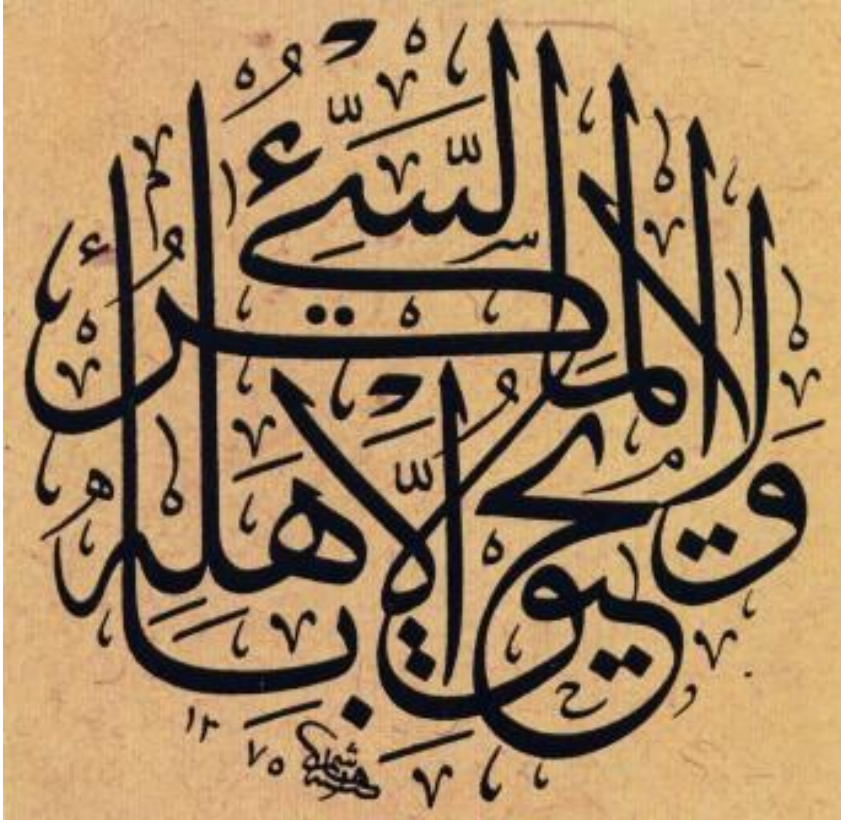 وَلَا يَحِيقُ الْمَكْرُ السَّيِّئُ إِلَّا بِأَهْلِهِ
١٣٧٥